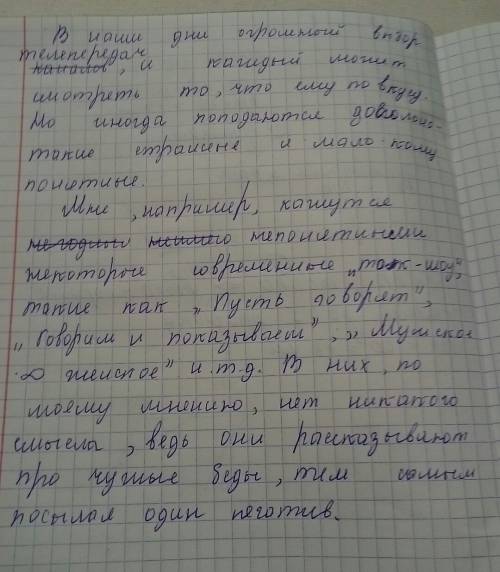 В наши дни огромный выбор
телепередач
каналов, и каждый может
смотреть то, что ему по вкусу.
Но иногда поподаются довольно-
такие странные и мало кому
понятные.
Мне, например, кажутся
непонятными
некоторые современные „ток-шоу",
такие как „Пусть говорят",
„Говорим и показываем", „Мужское
женское" и т.д. В них, по
моему мнению, нет никакого
смысла, ведь они рассказывают
про чужие беды, тем самым
посылая один негатив.